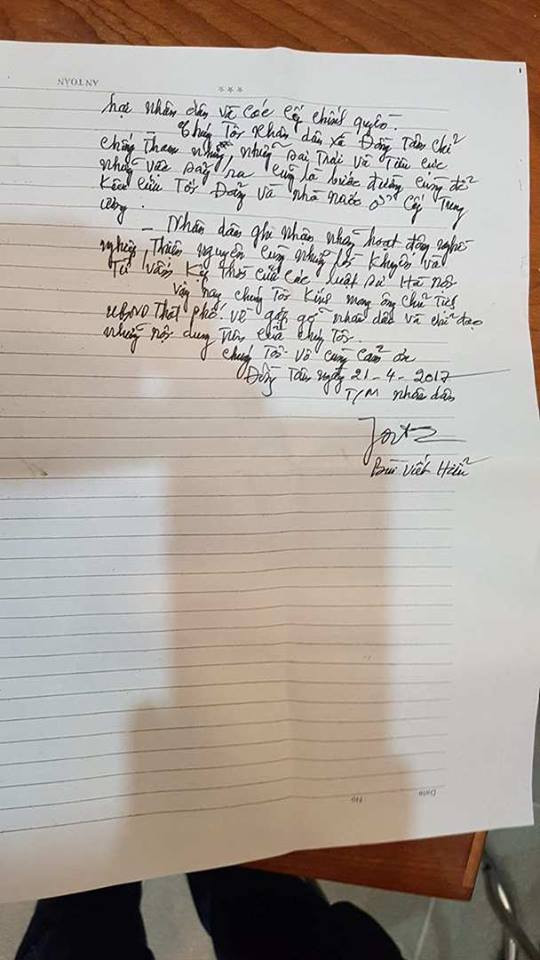 AN TOÀN
***
hại nhân dân và các cấp chính quyền.
Chúng Tôi nhân dân xã Đồng Tâm chỉ
chống Tham nhũng, những Sai Trái và Tiêu cực
những việc xảy ra cũng là bước đường cùng để
Kêu cứu Tới Đảng và nhà nước ở Cấp Trung
ương.
– Nhân dân ghi nhận những hoạt động
Thiện nguyện cùng những lời khuyên và
Tư vấn Kịp Thời của các luật sư Hà nội
Vậy nay chúng Tôi Kính mong ông chủ Tịch
UBND Thành phố về gặp gỡ nhân dân và chỉ đạo
những nội dung trên của chúng Tôi.
Chúng Tôi vô cùng cảm ơn
Đồng Tâm ngày 21-4-2017
T/M nhân dân
Bùi Viết Hiểu
No
Date